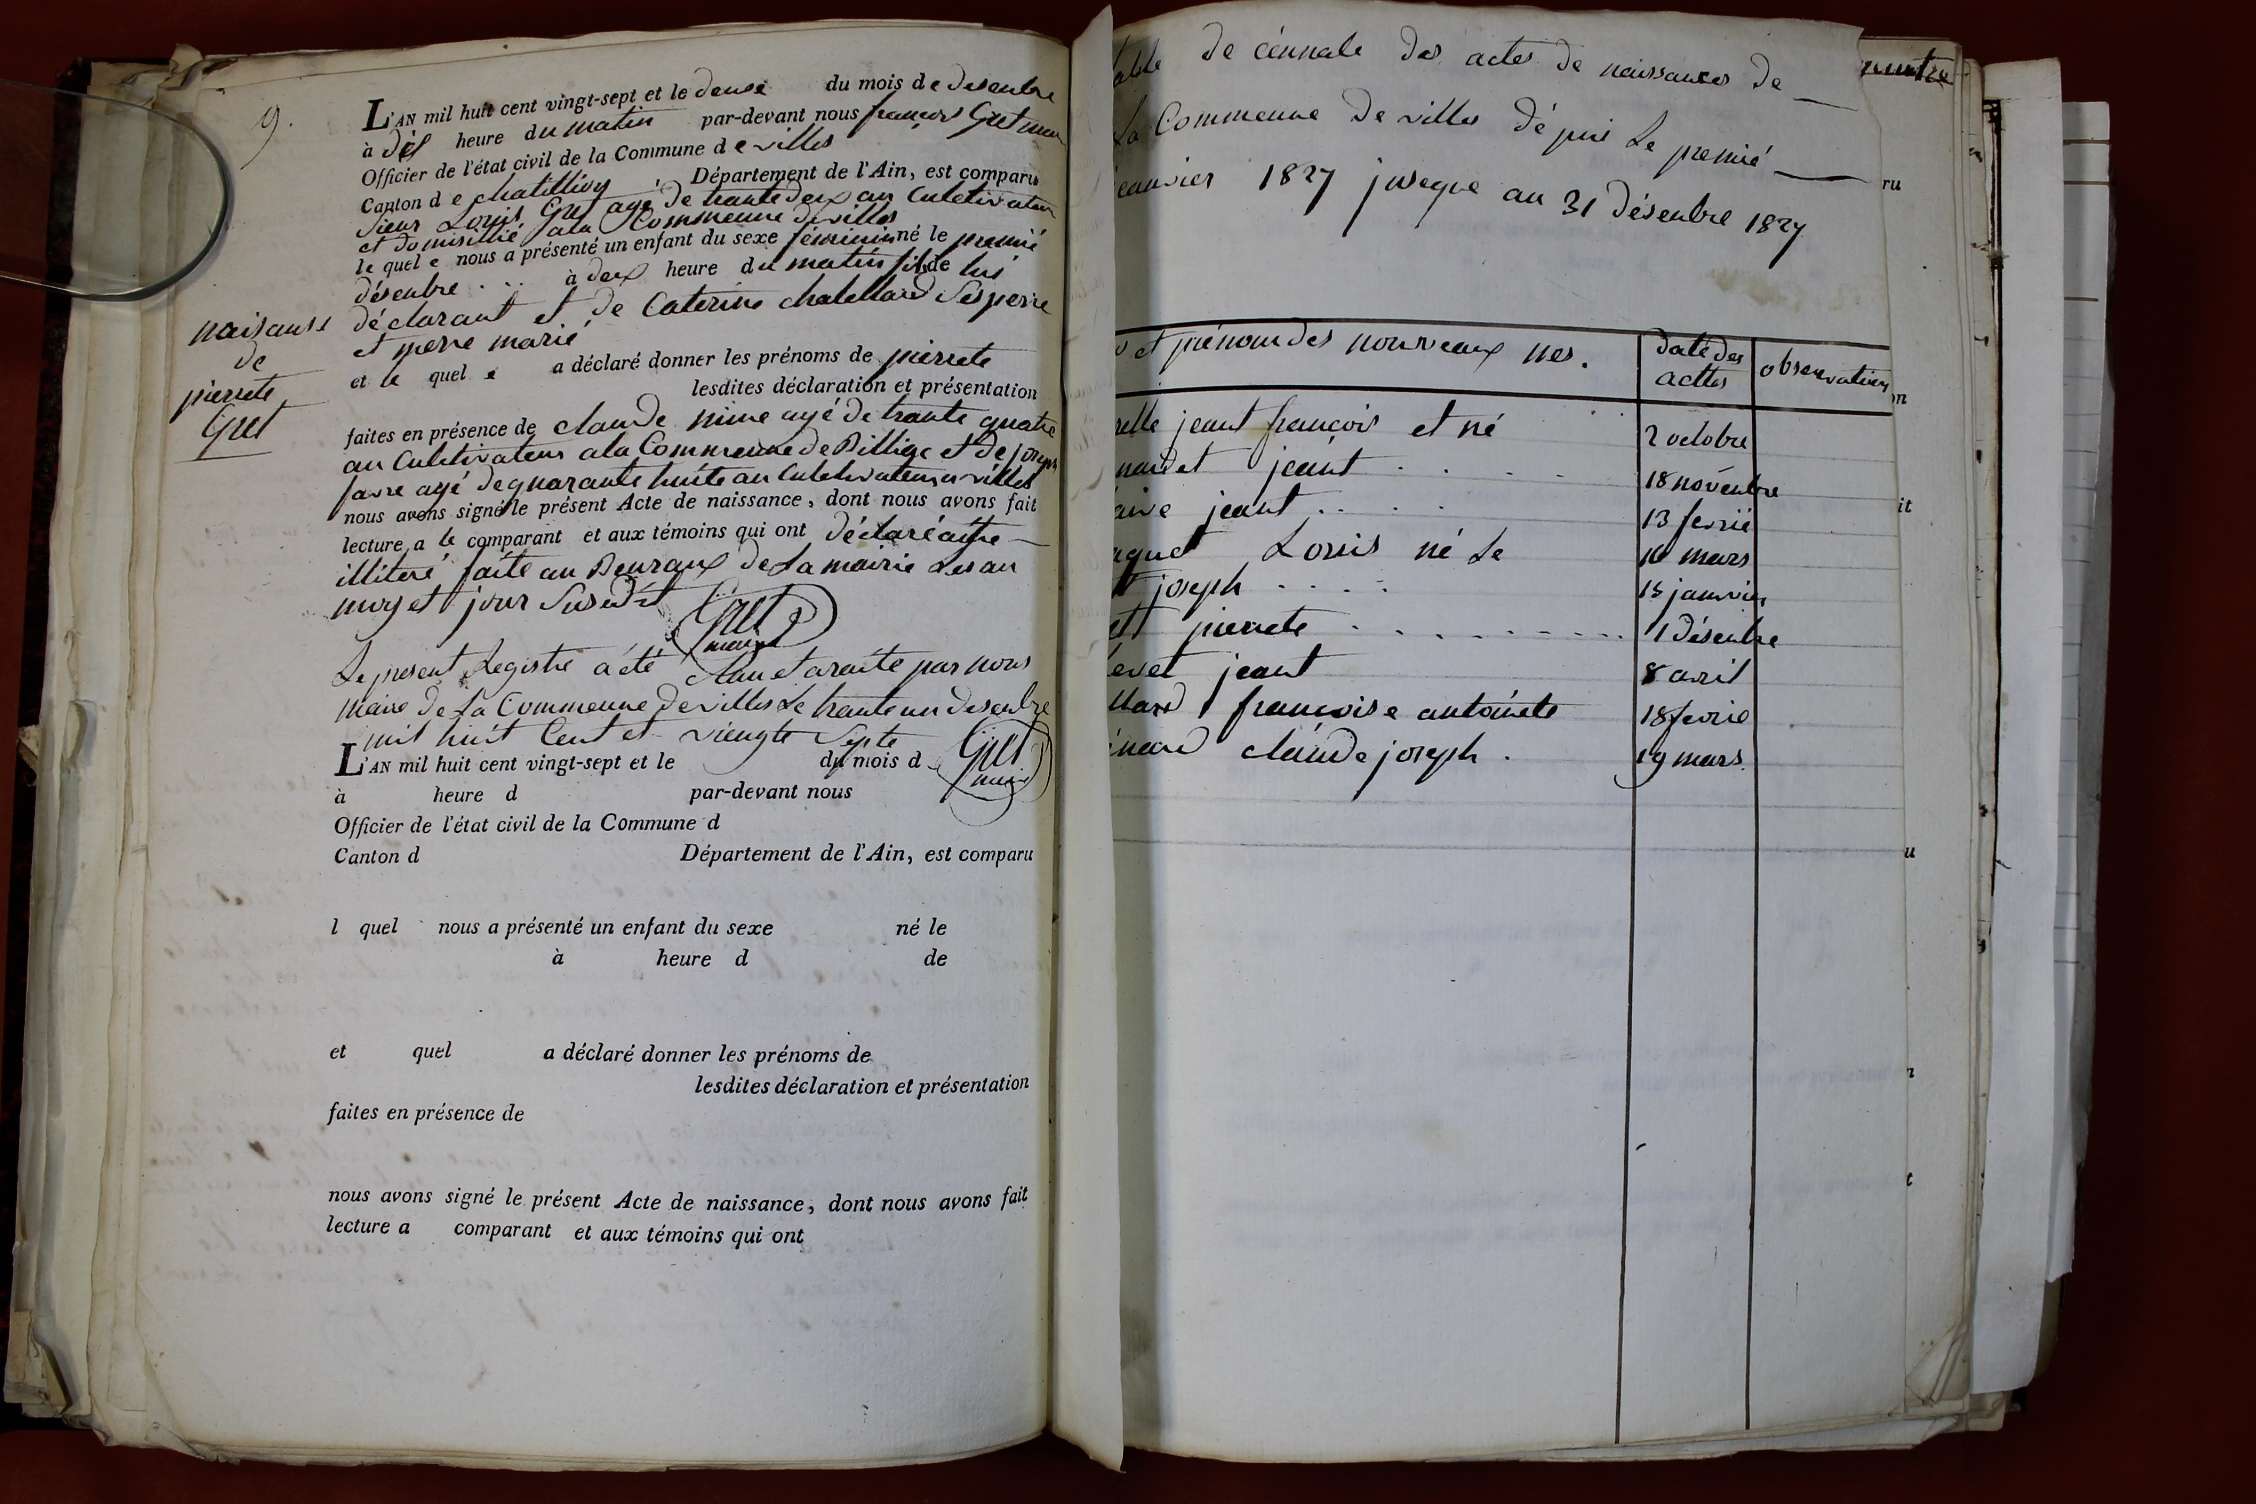 9.
L'AN mil huit cent vingt-sept et le deuse du mois de desenbre
à dis heure du matin par-devant nous françois Gret
Officier de l'état civil de la Commune de villes
Canton de chatillion Département de l'Ain, est comparu
sieur Louis Gret agé de trante deux an Culetivateur
et domisillié ala Commeune de villes
le quel e nous a présenté un enfant du sexe féminin né le premié
désenbre à deux heure du matin de lui
déclarant et de Caterine chatellard Ses perre
et merre marié
et le quel e a déclaré donner les prénoms de pierrete
lesdites déclaration et présentation
faites en présence de claude agé de trante quatre
an Culetivateur ala Commeune de Billiac et de joseph
favre agé de quarante huite an Culetivateur a villes
nous avons signé le présent Acte de naissance, dont nous avons fait
lecture a le comparant et aux témoins qui ont déclaré aître
illiteré faite au Beuraux de La mairie Les an
moy et jour Susedit
Gret
maire
naisanse
de
pierrete
Gret
Le present Registre a été par nous
maire de La Commeune de villes Le trante un desenbre
mil huit Cent et viengte Septe
Gret
maire
L'AN mil huit cent vingt-sept et le du mois d
à heure d par-devant nous
Officier de l'état civil de la Commune d
Canton d Département de l'Ain, est comparu
l quel nous a présenté un enfant du sexe né le
à heure d de
et quel a déclaré donner les prénoms de
lesdites déclaration et présentation
faites en présence de
nous avons signé le présent Acte de naissance, dont nous avons fait
lecture a comparant et aux témoins qui ont
table de cennale des actes de naissances de
La Commeune de villes dépuis Le premié
jeanvier 1827 juseque au 31 désenbre 1827
et prénom des nouveaux nes. date des actes observation
jeant françois et né 2 octobre
jeant 18 novenbre
jeant 13 fevrié
Louis né Le 10 mars
joseph 15 janvier
pierrete 1 Désenbre
jeant 8 avril
françoise antoinete 18 fevrié
claude joseph 19 mars
ru
n
it
u
t